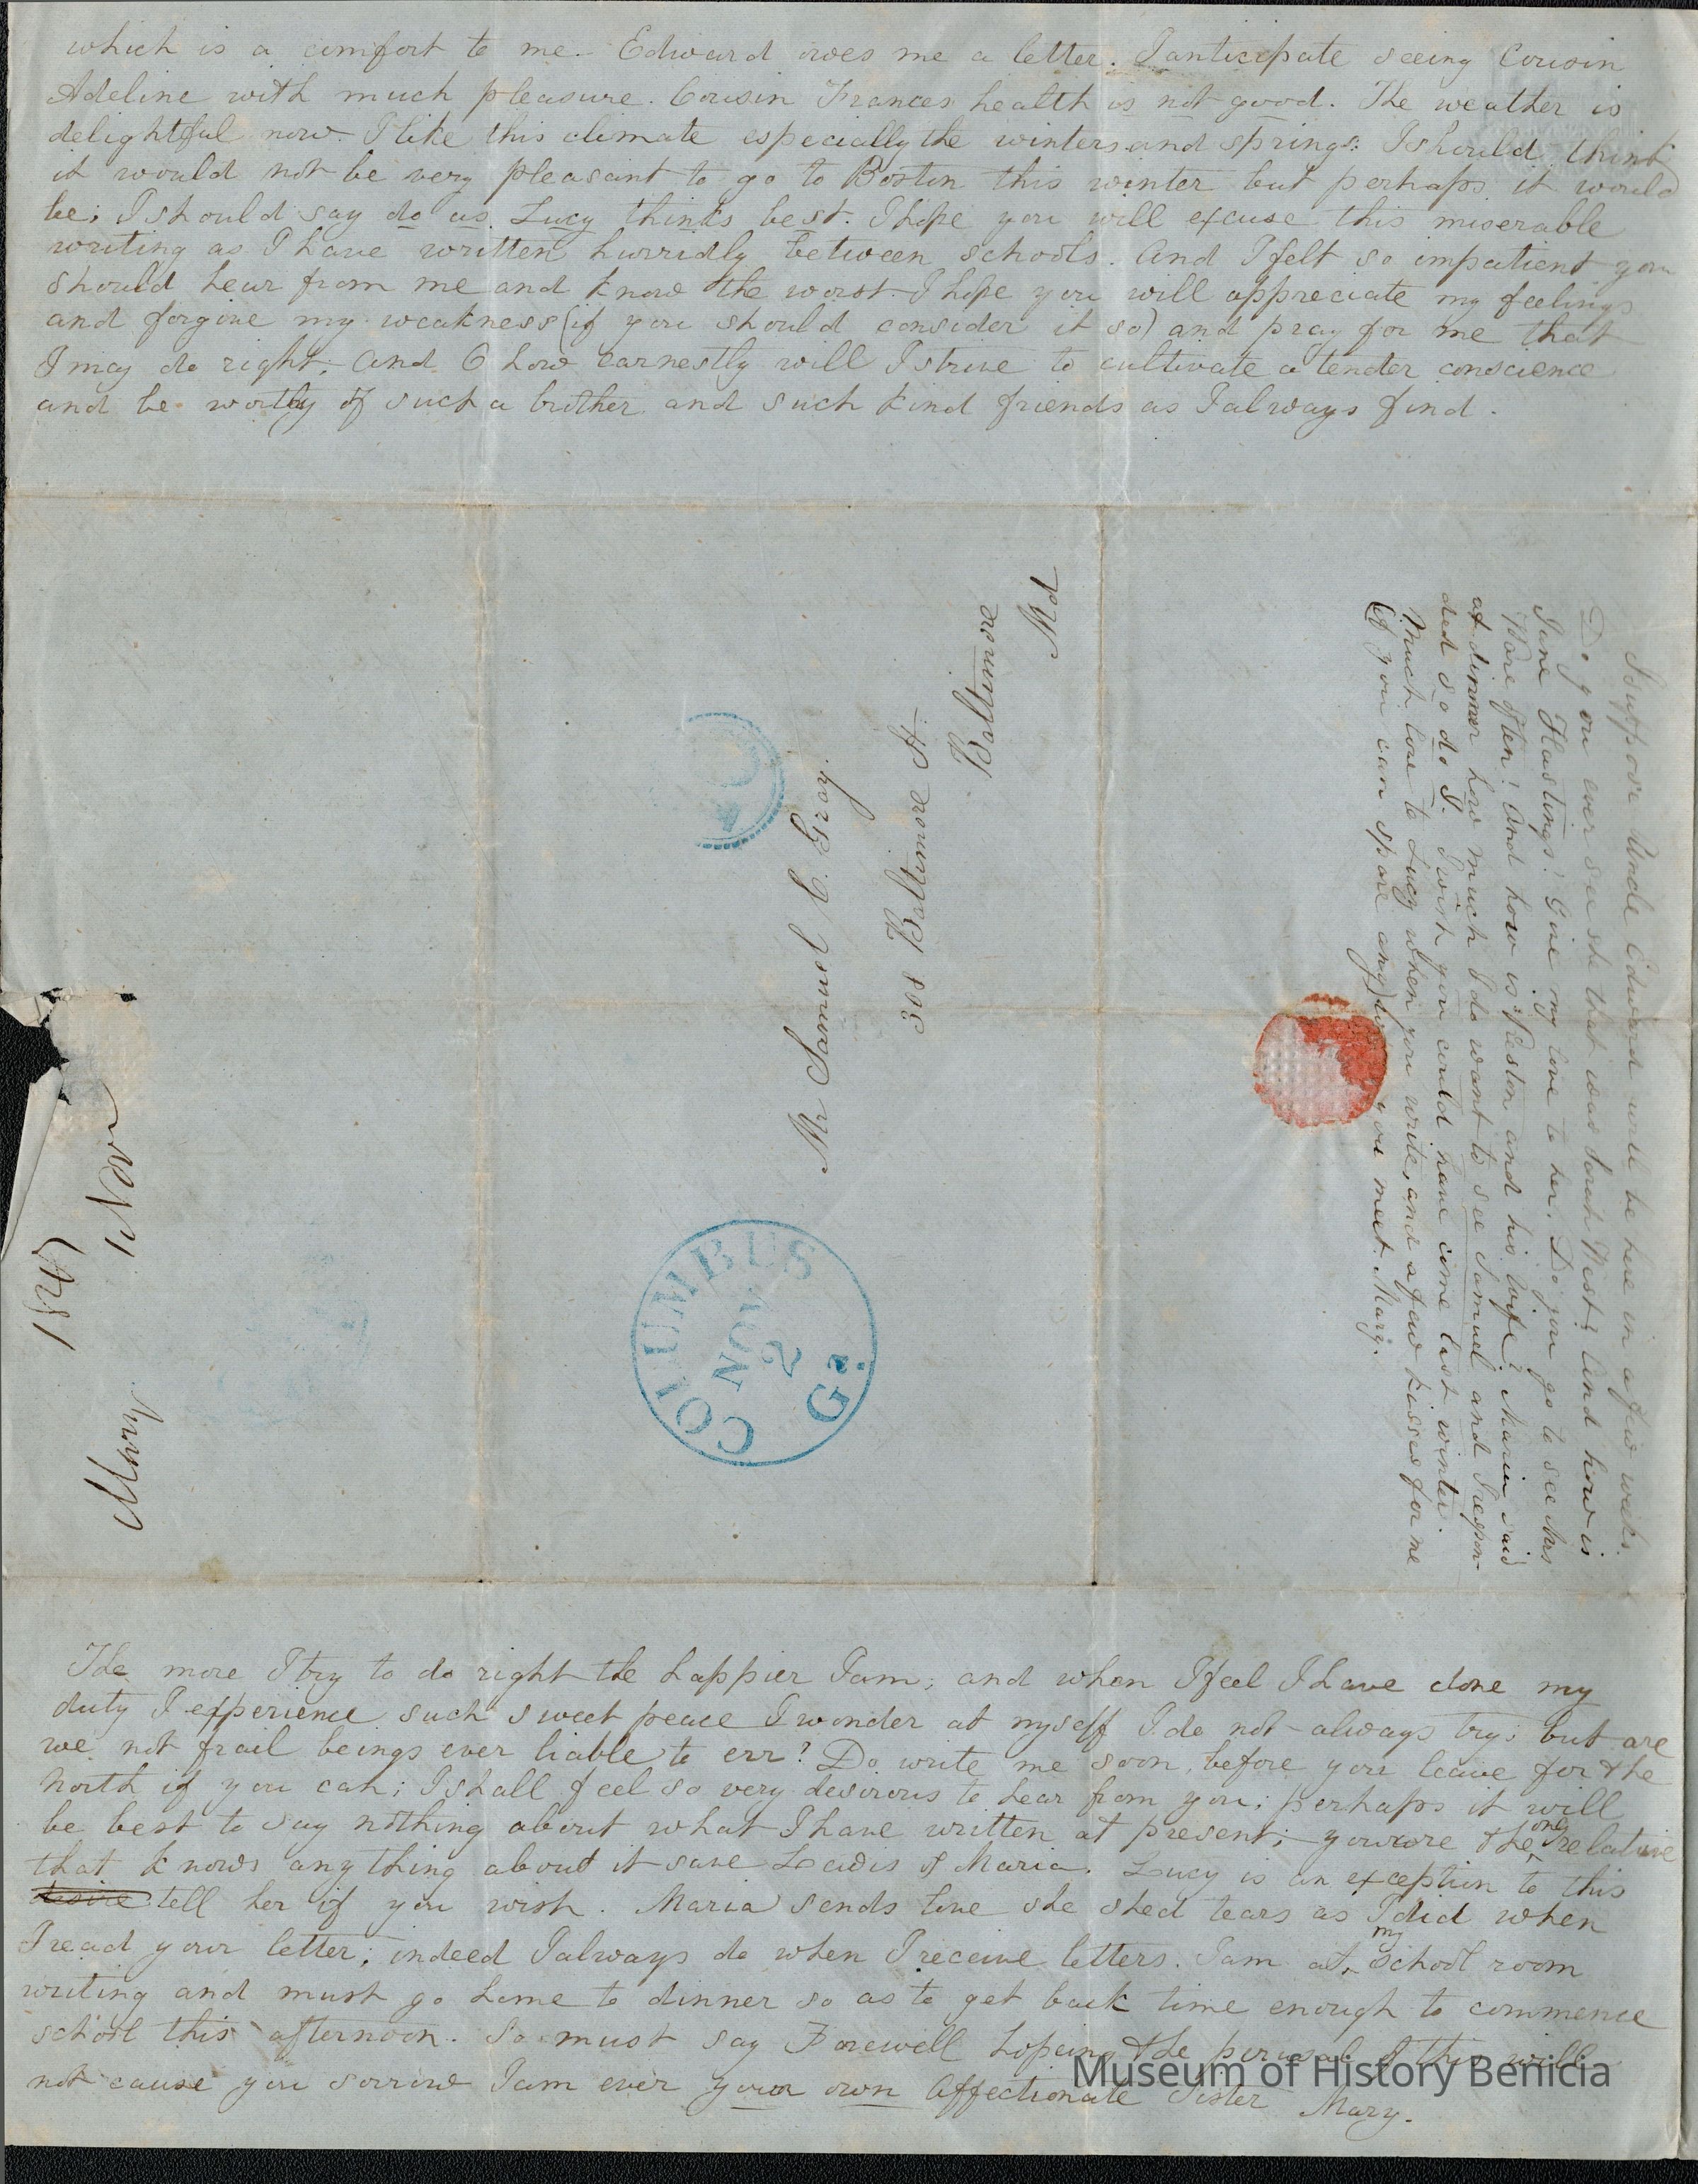 which is a comfort to me. Edward owes me a letter. I anticipate seeing Cousin
Adeline with much pleasure. Cousin Frances health is not good. The weather is
delightful now. I like this climate especially the winters and springs. I should think
it would not be very pleasant to go to Boston this winter but perhaps it would
be; I should say do as Lucy thinks best. I hope you will excuse this miserable
writing as I have written hurridly between schools. And I felt so impatient you
should hear from me and know the worst. I hope you will appreciate my feelings
and forgive my weakness (if you should consider it so) and pray for me that
I may do right; and O how earnestly will I strive to cultivate a tender conscience
and be worthy of such a brother and such kind friends as I always find.
I suppose Uncle Edward will be here in a few weeks.
Do you ever see she that was Sarah West? And how is
Jane Hastings? Give my love to her. Do you go to see Mrs
Bare often? And how is Weston and his wife? Maria said
at dinner how much I do want to see Samuel and I respon-
ded so do I. I wish you could have come last winter.
Much love to Lucy when you write, and a few kisses for me
(if you can spare any) you meet. Mary.
Mr Samuel C. Gray.
308 Baltimore St.
Baltimore
Md
COLUMBUS
NOV
2
Ga.
1847
1 Nov
Mary
The more I try to do right the happier I am; and when I feel I have done my
duty I experience such sweet peace I wonder at myself I do not always try; but are
we not frail beings ever liable to err? Do write me soon, before you leave for the
North if you can; I shall feel so very desirous to hear from you; perhaps it will
be best to say nothing about what I have written at present; you are the one relative
that knows anything about it save Lewis & Maria. Lucy is an exception to this
desire tell her if you wish. Maria sends love she shed tears as I did when
I read your letter; indeed I always do when I receive letters. I am at my school room
writing and must go home to dinner so as to get back time enough to commence
school this afternoon. So must say Farewell hopeing the perusal of this will
not cause you sorrow I am ever your own Affectionate Sister Mary.
Museum of History Benicia